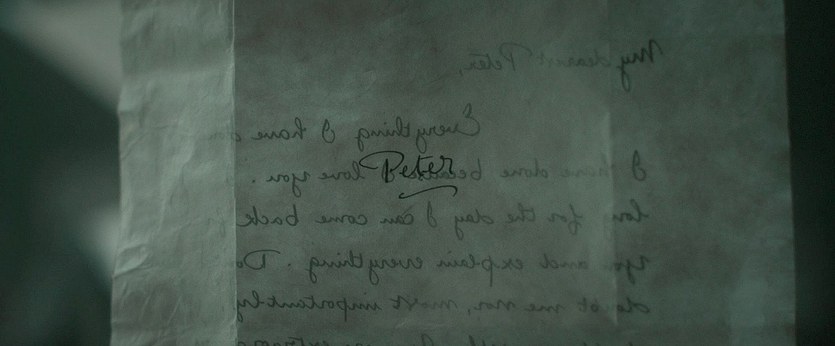 My dearest Peter,
Everything I have
Peter
I have done because I love you.
for the day I can come back
you and explain everything. Do
doubt me nor, most importantly